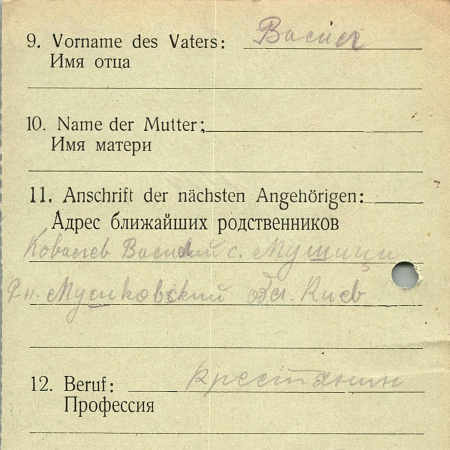 9. Vorname des Vaters: Васил
Имя отца
10. Name der Mutter:
Имя матери
11. Anschrift der nächsten Angehörigen:
Адрес ближайших родственников
Ковалев Василий с. Мушици
обл. Киев
12. Beruf: крестянин
Профессия